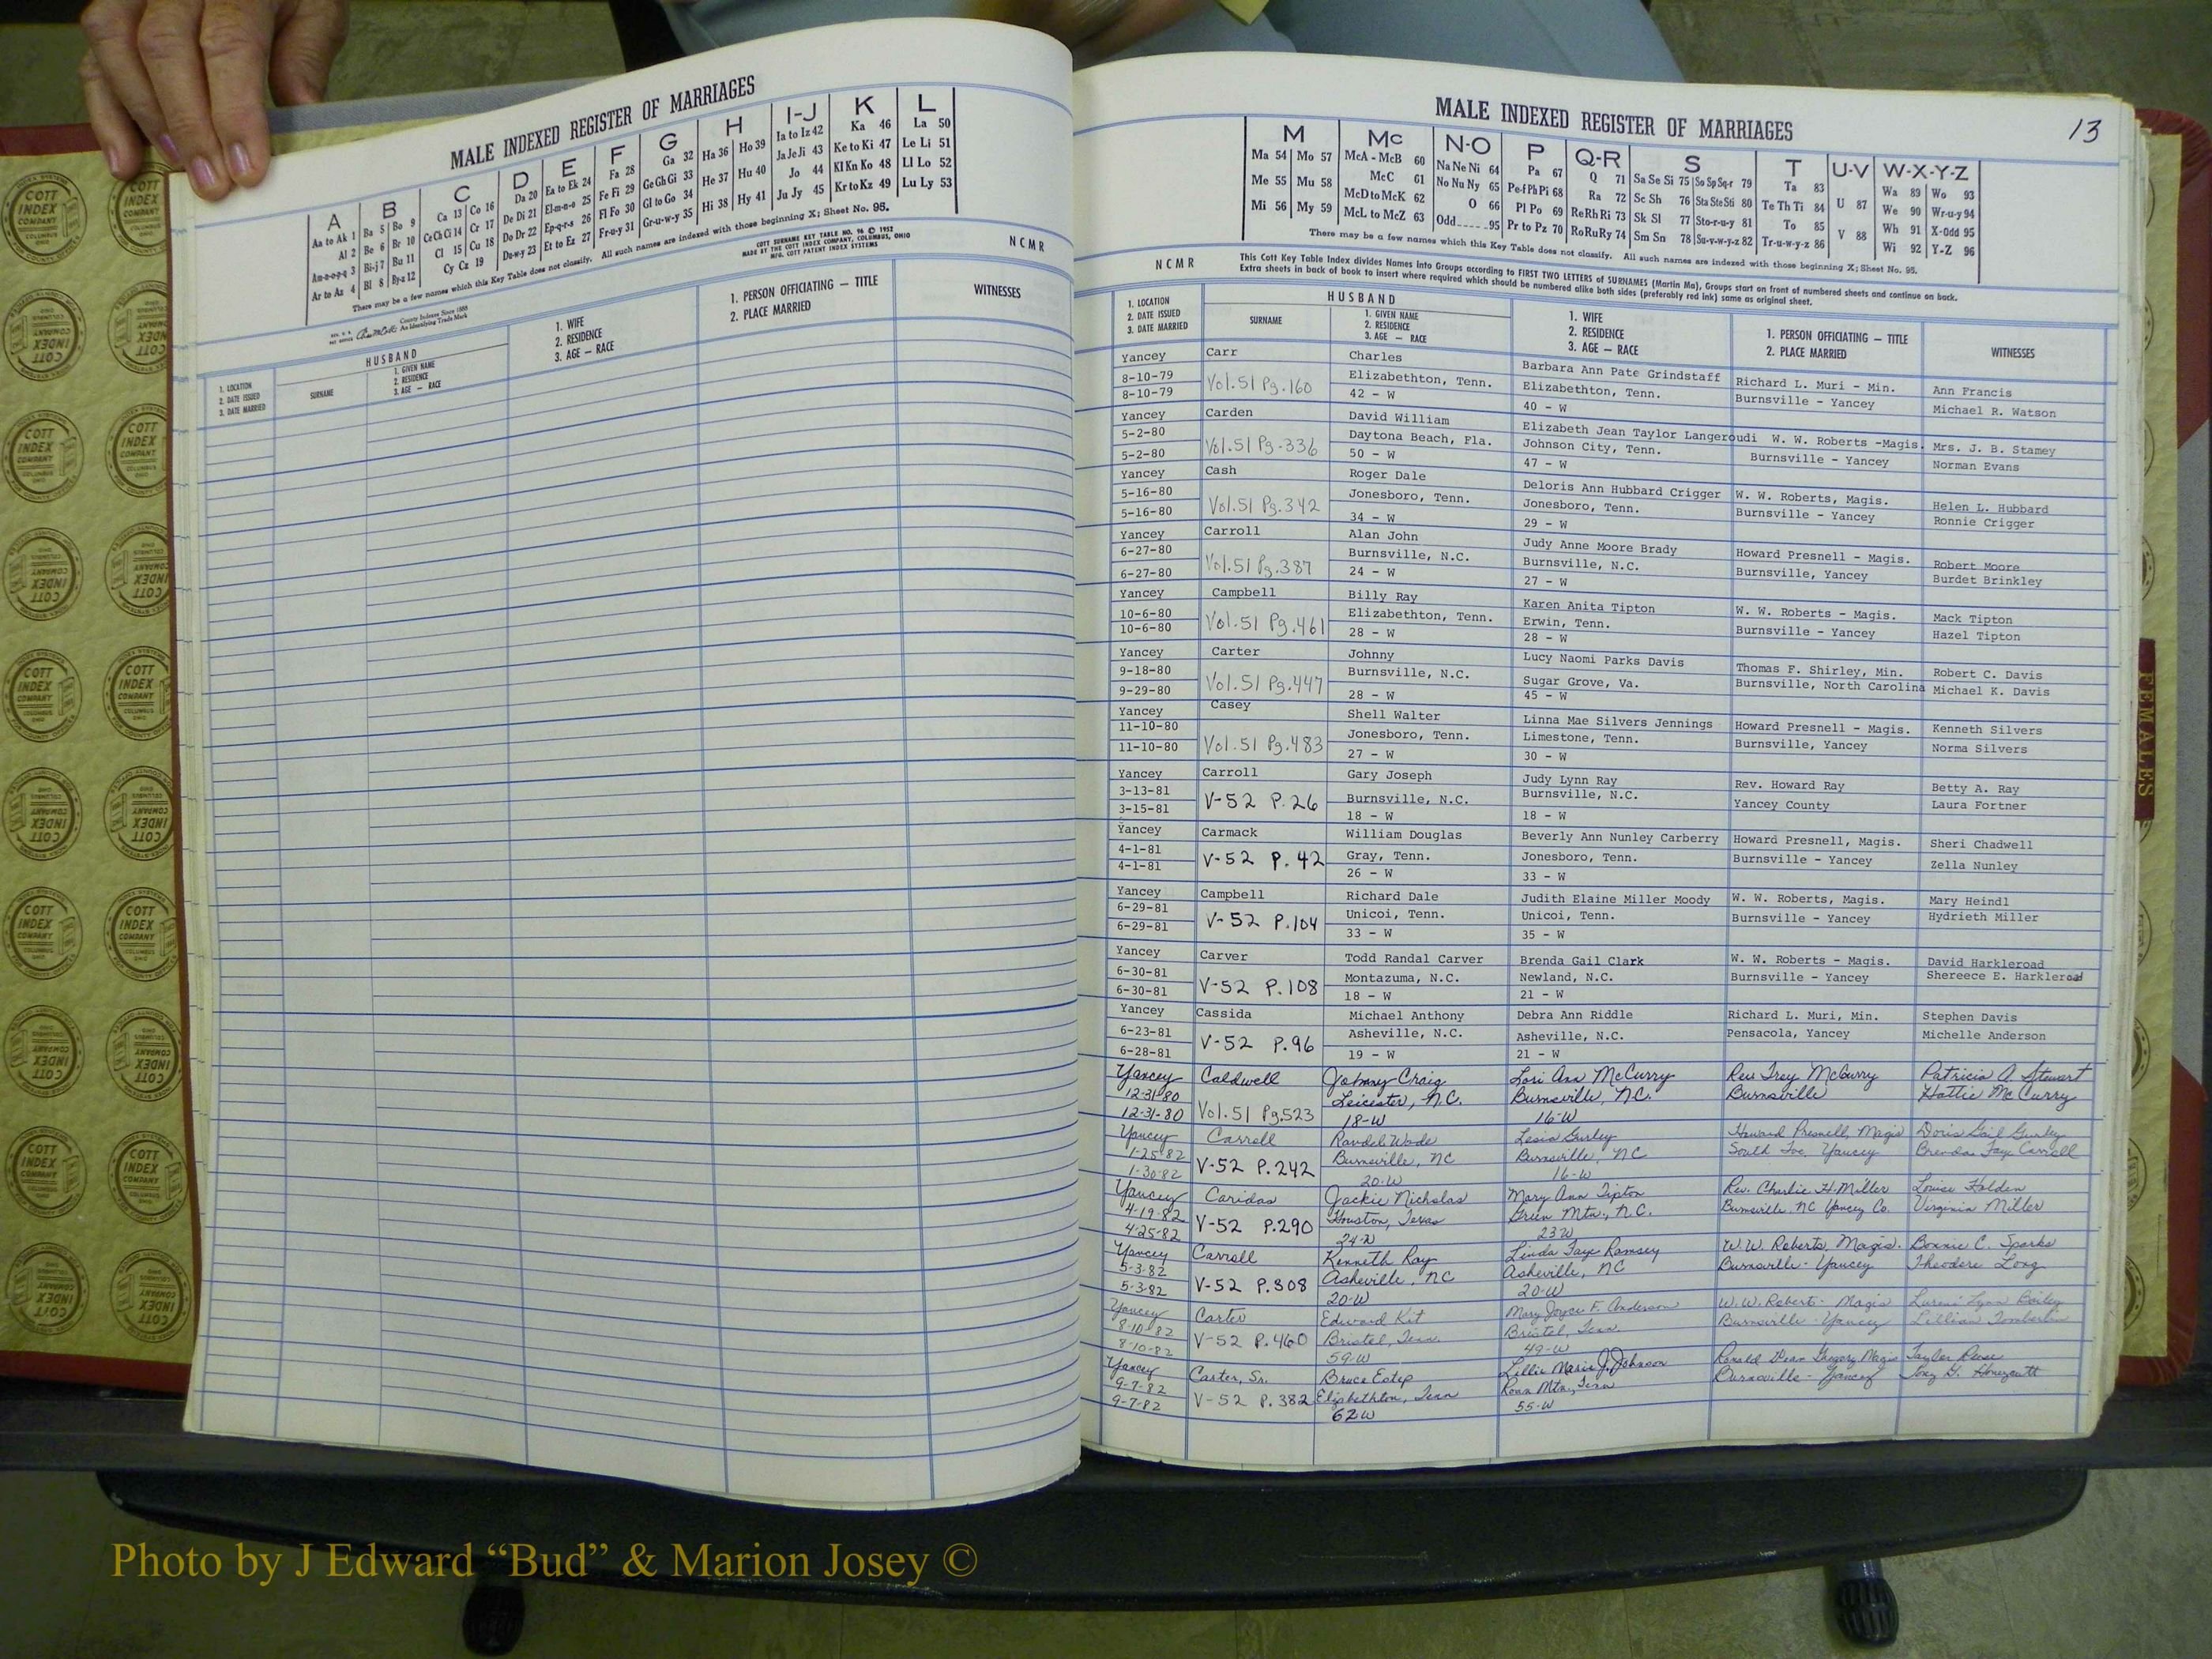 MALE INDEXED REGISTER OF MARRIAGES
A B C D E F G H I-J K L
Aa to Ak 1 Ba 5 Bo 9 Ca 13 Co 16 Da 20 Ea to Ek 24 Fa 28 Ga 32 Ha 36 Ho 39 Ia to Iz 42 Ka 46 La 50
Al 2 Be 6 Br 10 Ce Ch Ci 14 Cr 17 De Di 21 El-m-n-o 25 Fe Fi 29 Ge Gh Gi 33 He 37 Hu 40 Ja Je Ji 43 Ke to Ki 47 Le Li 51
Am-n-o-p-q 3 Bi-j 7 Bu 11 Cl 15 Cu 18 Do Dr 22 Ep-q-r-s 26 Fl Fo 30 Gl to Go 34 Hi 38 Hy 41 Jo 44 Kl Kn Ko 48 Ll Lo 52
Ar to Az 4 Bl 8 By-z 12 Cy Cz 19 Du-w-y 23 Et to Ez 27 Fr-u-y 31 Gr-u-w-y 35 Ju Jy 45 Kr to Kz 49 Lu Ly 53
There may be a few names which this Key Table does not classify. All such names are indexed with those beginning X; Sheet No. 95.
County Indexes Since 1888
An Identifying Trade Mark
COTT SURNAME KEY TABLE NO. 96 © 1952
MADE BY THE COTT INDEX COMPANY, COLUMBUS, OHIO
MFG. COTT PATENT INDEX SYSTEMS
NCMR
1. LOCATION
2. DATE ISSUED
3. DATE MARRIED
HUSBAND
SURNAME
1. GIVEN NAME
2. RESIDENCE
3. AGE — RACE
1. WIFE
2. RESIDENCE
3. AGE — RACE
1. PERSON OFFICIATING — TITLE
2. PLACE MARRIED
WITNESSES
MALE INDEXED REGISTER OF MARRIAGES
13
M Mc N-O P Q-R S T U-V W-X-Y-Z
Ma 54 Mo 57 McA - McB 60 Na Ne Ni 64 Pa 67 Q 71 Sa Se Si 75 So Sp Sq-r 79 Ta 83 U 87 Wa 89 Wo 93
Me 55 Mu 58 McC 61 No Nu Ny 65 Pe-f Ph Pi 68 Ra 72 Sc Sh 76 Sta Ste Sti 80 Te Th Ti 84 V 88 We 90 Wr-u-y 94
Mi 56 My 59 McD to McK 62 O 66 Pl Po 69 Re Rh Ri 73 Sk Sl 77 Sto-r-u-y 81 To 85 Wh 91 X-Odd 95
McL to McZ 63 Odd 95 Pr to Pz 70 Ro Ru Ry 74 Sm Sn 78 Su-v-w-y-z 82 Tr-u-w-y-z 86 Wi 92 Y-Z 96
There may be a few names which this Key Table does not classify. All such names are indexed with those beginning X; Sheet No. 95.
NCMR
This Cott Key Table Index divides Names into Groups according to FIRST TWO LETTERS of SURNAMES (Martin Ma), Groups start on front of numbered sheets and continue on back.
Extra sheets in back of book to insert where required which should be numbered alike both sides (preferably red ink) same as original sheet.
1. LOCATION
2. DATE ISSUED
3. DATE MARRIED
HUSBAND
SURNAME
1. GIVEN NAME
2. RESIDENCE
3. AGE — RACE
1. WIFE
2. RESIDENCE
3. AGE — RACE
1. PERSON OFFICIATING — TITLE
2. PLACE MARRIED
WITNESSES
Yancey Carr Charles Barbara Ann Pate Grindstaff Richard L. Muri - Min. Ann Francis
8-10-79 Vol.51 Pg.160 Elizabethton, Tenn. Elizabethton, Tenn. Burnsville - Yancey Michael R. Watson
8-10-79 42 - W 40 - W
Yancey Carden David William Elizabeth Jean Taylor Langeroudi W. W. Roberts -Magis. Mrs. J. B. Stamey
5-2-80 Vol.51 Pg-336 Daytona Beach, Fla. Johnson City, Tenn. Burnsville - Yancey Norman Evans
5-2-80 50 - W 47 - W
Yancey Cash Roger Dale Deloris Ann Hubbard Crigger W. W. Roberts, Magis. Helen L. Hubbard
5-16-80 Vol.51 Pg.342 Jonesboro, Tenn. Jonesboro, Tenn. Burnsville - Yancey Ronnie Crigger
5-16-80 34 - W 29 - W
Yancey Carroll Alan John Judy Anne Moore Brady Howard Presnell - Magis. Robert Moore
6-27-80 Vol.51 Pg.387 Burnsville, N.C. Burnsville, N.C. Burnsville, Yancey Burdet Brinkley
6-27-80 24 - W 27 - W
Yancey Campbell Billy Ray Karen Anita Tipton W. W. Roberts - Magis. Mack Tipton
10-6-80 Vol.51 Pg.461 Elizabethton, Tenn. Erwin, Tenn. Burnsville - Yancey Hazel Tipton
10-6-80 28 - W 28 - W
Yancey Carter Johnny Lucy Naomi Parks Davis Thomas F. Shirley, Min. Robert C. Davis
9-18-80 Vol.51 Pg.447 Burnsville, N.C. Sugar Grove, Va. Burnsville, North Carolina Michael K. Davis
9-29-80 28 - W 45 - W
Yancey Casey Shell Walter Linna Mae Silvers Jennings Howard Presnell - Magis. Kenneth Silvers
11-10-80 Vol.51 Pg.483 Jonesboro, Tenn. Limestone, Tenn. Burnsville, Yancey Norma Silvers
11-10-80 27 - W 30 - W
Yancey Carroll Gary Joseph Judy Lynn Ray Rev. Howard Ray Betty A. Ray
3-13-81 V-52 P.26 Burnsville, N.C. Burnsville, N.C. Yancey County Laura Fortner
3-15-81 18 - W 18 - W
Yancey Carmack William Douglas Beverly Ann Nunley Carberry Howard Presnell, Magis. Sheri Chadwell
4-1-81 V-52 P.42 Gray, Tenn. Jonesboro, Tenn. Burnsville - Yancey Zella Nunley
4-1-81 26 - W 33 - W
Yancey Campbell Richard Dale Judith Elaine Miller Moody W. W. Roberts, Magis. Mary Heindl
6-29-81 V-52 P.104 Unicoi, Tenn. Unicoi, Tenn. Burnsville - Yancey Hydrieth Miller
6-29-81 33 - W 35 - W
Yancey Carver Todd Randal Carver Brenda Gail Clark W. W. Roberts - Magis. David Harkleroad
6-30-81 V-52 P.108 Montazuma, N.C. Newland, N.C. Burnsville - Yancey Shereece E. Harkleroad
6-30-81 18 - W 21 - W
Yancey Cassida Michael Anthony Debra Ann Riddle Richard L. Muri, Min. Stephen Davis
6-23-81 V-52 P.96 Asheville, N.C. Asheville, N.C. Pensacola, Yancey Michelle Anderson
6-28-81 19 - W 21 - W
Yancey Caldwell Johnny Craig Lori Ann McCurry Rev. Trey McCurry Patricia A. Stewart
12-31-80 Vol.51 Pg523 Leicester, N.C. Burnsville, N.C. Burnsville Hattie McCurry
12-31-80 18-W 16-W
Yancey Carroll Randel Wade Lesia Gurley Howard Presnell, Magis Doris Gail Gurley
1-25-82 V-52 P.242 Burnsville, NC Burnsville, NC South Toe, Yancey Brenda Faye Carroll
1-30-82 20-W 16-W
Yancey Caridas Jackie Nicholas Mary Ann Tipton Rev. Charlie H. Miller Louise Holden
4-19-82 V-52 P.290 Houston, Texas Green Mtn., N.C. Burnsville, NC Yancey Co. Virginia Miller
4-25-82 24-W 23W
Yancey Carroll Kenneth Ray Linda Faye Ramsey W.W. Roberts, Magis. Bonnie C. Sparks
5-3-82 V-52 P.308 Asheville, NC Asheville, NC Burnsville - Yancey Theodore Long
5-3-82 20-W 20-W
Yancey Carter Edward Kit Mary Joyce F. Anderson W.W. Roberts - Magis Lynn Bailey
8-10-82 V-52 P.460 Bristol, Tenn. Bristol, Tenn. Burnsville - Yancey Lillian Tomberlin
8-10-82 59-W 49-W
Yancey Carter, Sr. Bruce Estep Lillie Marie J. Johnson Ronald Dean Gregory Magis Taylor
9-7-82 V-52 P.382 Elizabethton, Tenn Roan Mtn., Tenn Burnsville - Yancey Tony G. Honeycutt
9-7-82 62W 55-W
FEMALES
COTT
INDEX
COMPANY
Photo by J Edward “Bud” & Marion Josey ©